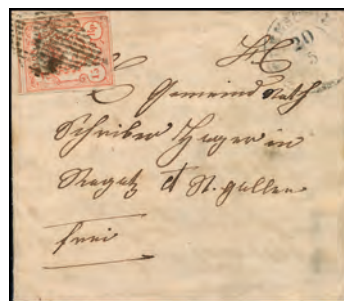 20
5
15
Gemeind Rath
Schreiber Hager in
Ragatz Ct St. Gallen
frei